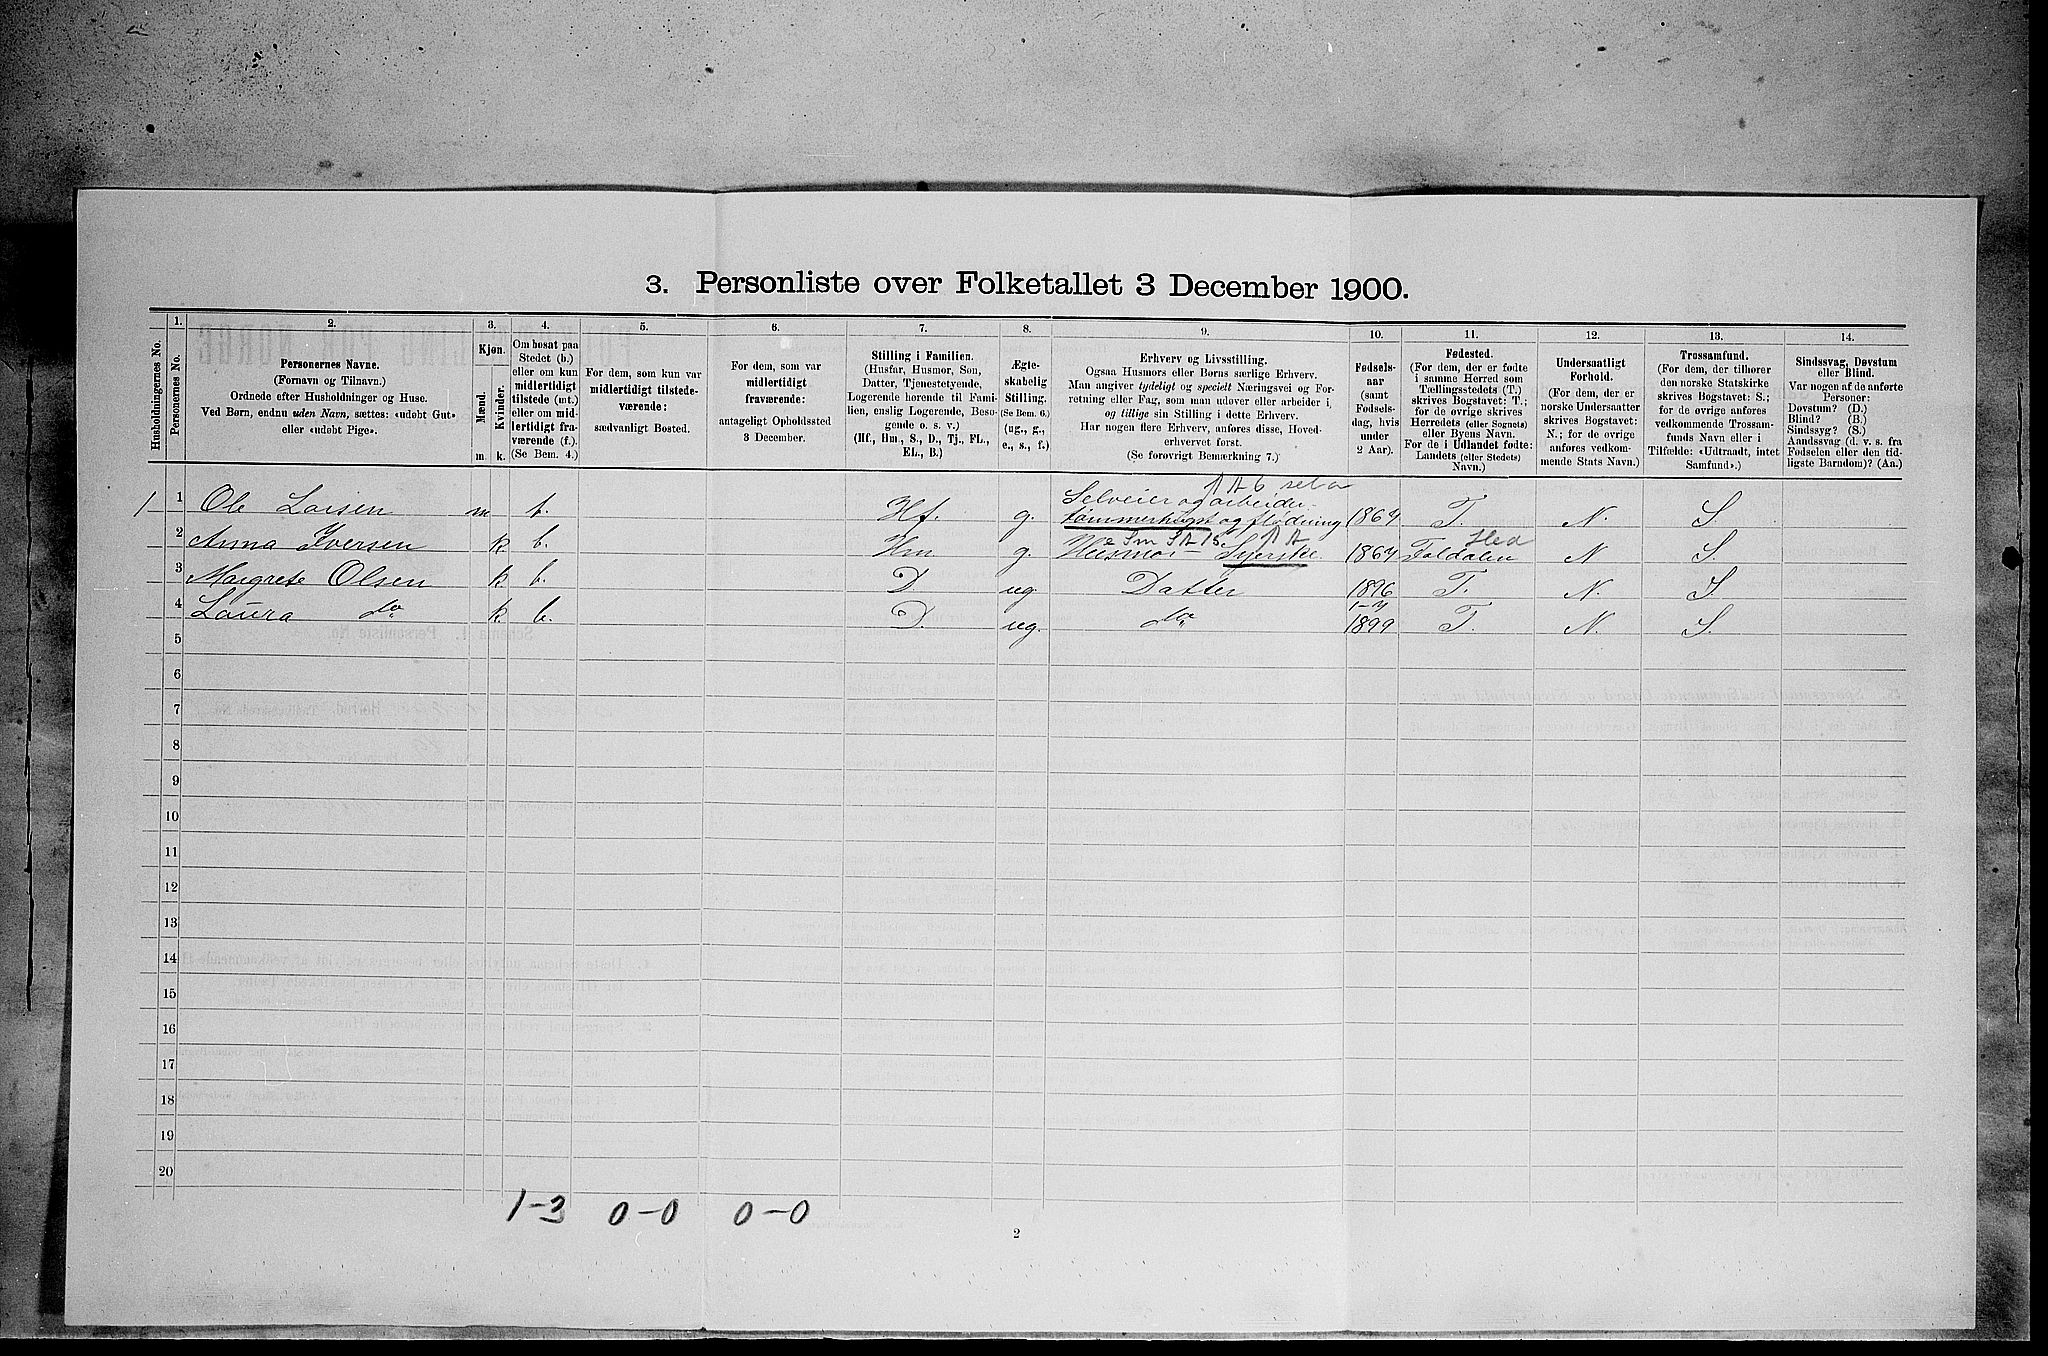 3. Personliste over Folketallet 3 December 1900.
Husholdningernes No.
1.
Personernes No.
2.
Personernes Navne.
(Fornavn og Tilnavn.)
Ordnede efter Husholdninger og Huse.
Ved Børn, endnu uden Navn, sættes: «udøbt Gut»
eller «udøbt Pige».
3.
Kjøn.
Mænd.
Kvinder.
m.
k.
4.
Om bosat paa
Stedet (b.)
eller om kun
midlertidigt
tilstede (mt.)
eller om mid-
lertidigt fra-
værende (f.).
(Se Bem. 4.)
5.
For dem, som kun var
midlertidigt tilstede-
værende:
sædvanligt Bosted.
6.
For dem, som var
midlertidigt
fraværende:
antageligt Opholdssted
3 December.
7.
Stilling i Familien.
(Husfar, Husmor, Søn,
Datter, Tjenestetyende,
Logerende hørende til Fami-
lien, enslig Logerende, Besø-
gende o. s. v.)
(Hf., Hm., S., D., Tj., FL.,
EL., B.)
8.
Ægte-
skabelig
Stilling.
(Se Bem. 6.)
(ug., g.,
e., s., f.)
9.
Erhverv og Livsstilling.
Ogsaa Husmors eller Børns særlige Erhverv.
Man angiver tydeligt og specielt Næringsvei og For-
retning eller Fag, som man udøver eller arbeider i,
og tillige sin Stilling i dette Erhverv.
Har nogen flere Erhverv, anføres disse, Hoved-
erhvervet først.
(Se forøvrigt Bemærkning 7.)
10.
Fødsels-
aar
(samt
Fødsels-
dag, hvis
under
2 Aar).
11.
Fødested.
(For dem, der er fødte
i samme Herred som
Tællingsstedets (T.)
skrives Bogstavet: T.;
for de øvrige skrives
Herredets (eller Sognets)
eller Byens Navn.
For de i Udlandet fødte:
Landets (eller Stedets)
Navn.)
12.
Undersaatligt
Forhold.
(For dem, der er
norske Undersaatter
skrives Bogstavet:
N.; for de øvrige
anføres vedkom-
mende Stats Navn.)
13.
Trossamfund.
(For dem, der tilhører
den norske Statskirke
skrives Bogstavet: S.;
for de øvrige anføres
vedkommende Trossam-
funds Navn eller i
Tilfælde: «Udtraadt, intet
Samfund».)
14.
Sindssvag, Døvstum
eller Blind.
Var nogen af de anførte
Personer:
Døvstum? (D.)
Blind? (B.)
Sindssyg? (S.)
Aandssvag (d. v. s. fra
Fødselen eller den tid-
ligste Barndom)? (Aa.)
1 1 Ole Larsen m b. Hf. g. Selveier og arbeider- tømmerhugst og flødning 1864 T. N. S.
2 Anna Iversen k b. Hm g. Husmor - Syerske 1864 Foldalen Hed N S.
3 Margrete Olsen k b. D. ug. Datter 1896 T. N. S.
4 Laura do k b. D. ug. do 1899 T. N. S.
5
6
7
8
9
10
11
12
13
14
15
16
17
18
19
20
1-3 0-0 0-0
2